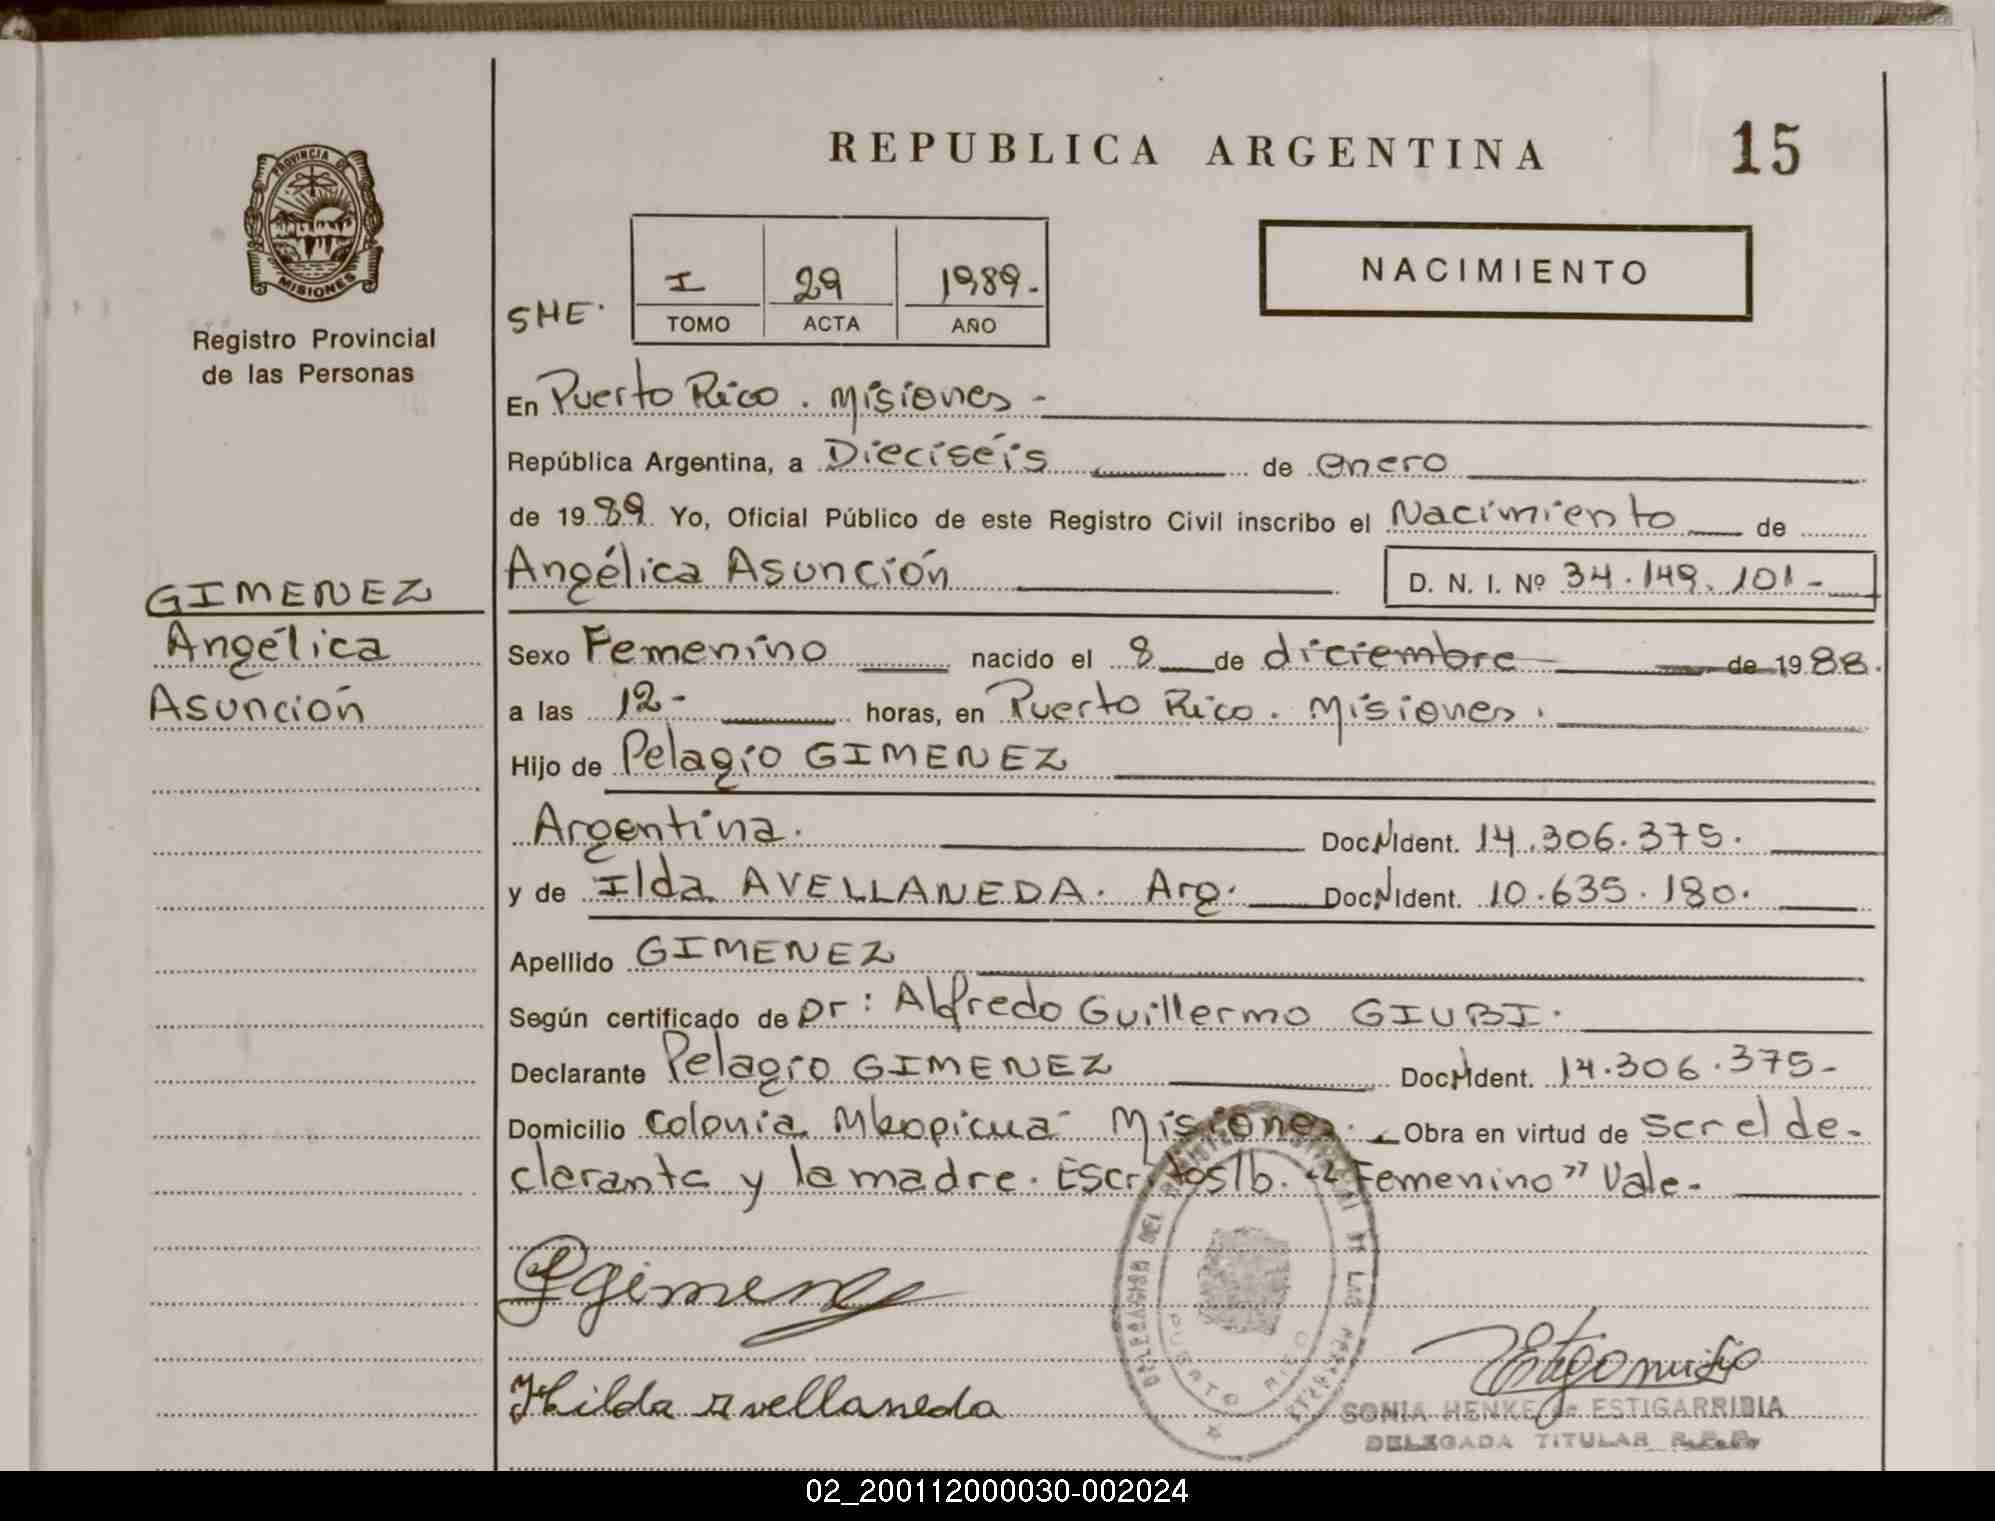 REPUBLICA ARGENTINA 15
PROVINCIA DE
MISIONES
Registro Provincial
de las Personas
SHE.
I 29 1989.-
TOMO ACTA AÑO
NACIMIENTO
En Puerto Rico. Misiones -
República Argentina, a Dieciséis de enero
de 1989 Yo, Oficial Público de este Registro Civil inscribo el Nacimiento de
Angélica Asunción D. N. I. Nº 34.149.101-
GIMENEZ
Angélica
Asunción
Sexo Femenino nacido el 8 de diciembre de 1988.
a las 12- horas, en Puerto Rico. Misiones.
Hijo de Pelagio GIMENEZ
Argentina. Doc.N.Ident. 14.306.375.
y de Ilda AVELLANEDA. Arg. Doc.N.Ident. 10.635.180.
Apellido GIMENEZ
Según certificado de Dr: Alfredo Guillermo GIUBI.
Declarante Pelagio GIMENEZ Doc.N.Ident. 14.306.375-
Domicilio Colonia Mbopicuá Misiones. Obra en virtud de ser el de-
clarante y la madre. Escritos/b. "Femenino" Vale-
PGimenez
Hilda Avellaneda
PUERTO RICO
SONIA HENKE de ESTIGARRIBIA
DELEGADA TITULAR R.P.P.
02_200112000030-002024